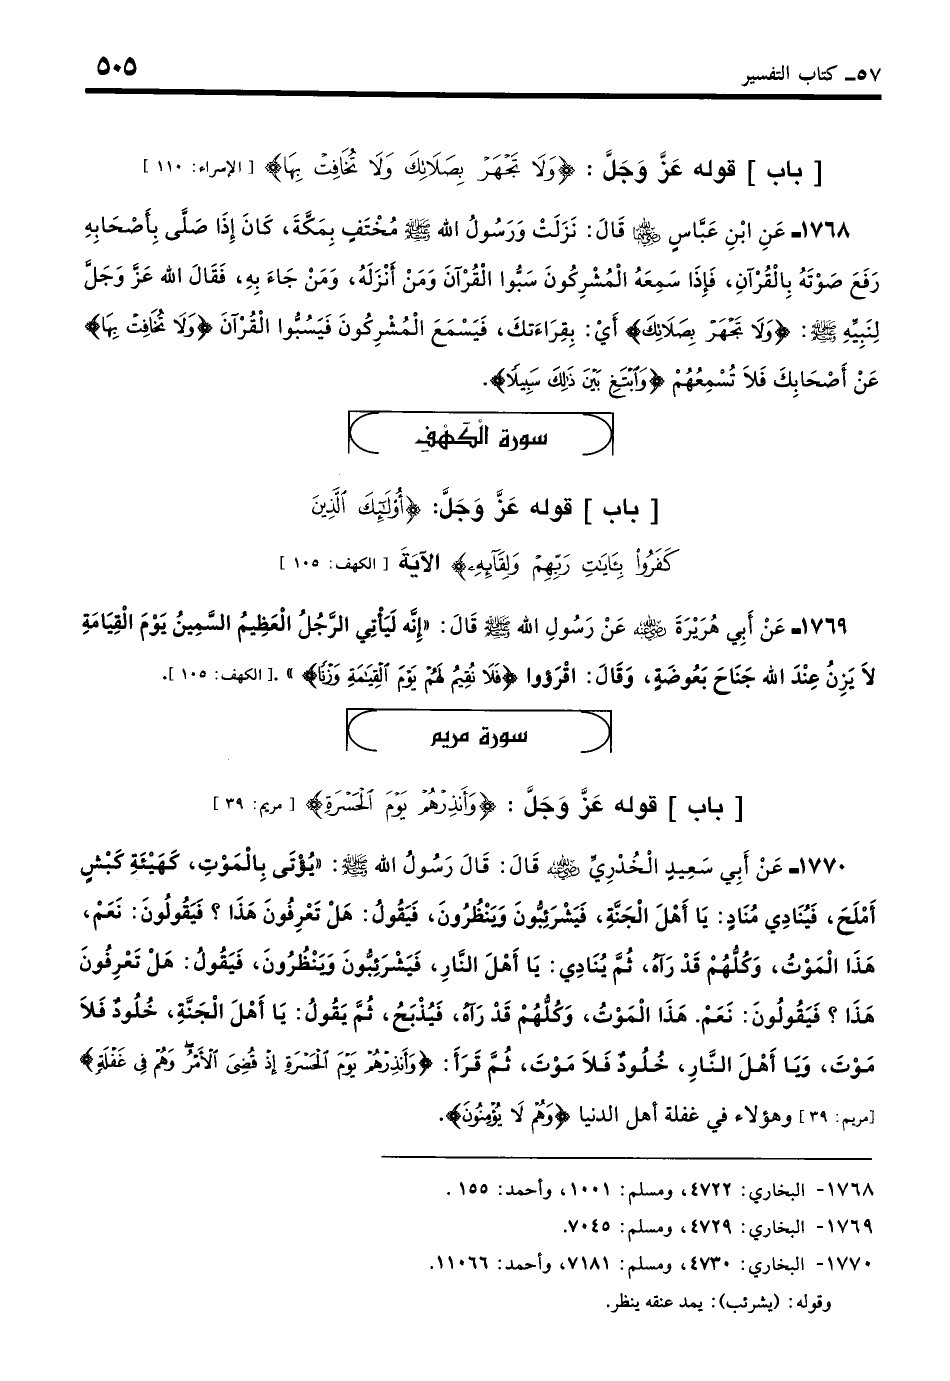 ٥٧ـ كتاب التفسير ٥٠٥
[ باب ] قوله عَزَّ وَجَلَّ : ﴿وَلَا تَجْهَرْ بِصَلَاتِكَ وَلَا تُخَافِتْ بِهَا﴾ [ الإسراء: ١١٠ ]
١٧٦٨ـ عَنِ ابْنِ عَبَّاسٍ ﷺ قَالَ: نَزَلَتْ وَرَسُولُ الله ﷺ مُخْتَفٍ بِمَكَّةَ، كَانَ إِذَا صَلَّى بِأَصْحَابِهِ
رَفَعَ صَوْتَهُ بِالْقُرْآنِ، فَإِذَا سَمِعَهُ الْمُشْرِكُونَ سَبُّوا الْقُرْآنَ وَمَنْ أَنْزَلَهُ، وَمَنْ جَاءَ بِهِ، فَقَالَ الله عَزَّ وَجَلَّ
لِنَبِيِّهِ ﷺ: ﴿وَلَا تَجْهَرْ بِصَلَاتِكَ﴾ أَيْ: بِقِرَاءَتكَ، فَيَسْمَعَ الْمُشْرِكُونَ فَيَسُبُّوا الْقُرْآنَ ﴿وَلَا تُخَافِتْ بِهَا﴾
عَنْ أَصْحَابِكَ فَلاَ تُسْمِعُهُمْ ﴿وَٱبْتَغِ بَيْنَ ذَٰلِكَ سَبِيلًا﴾.
سورة الْكَهْفِ
[ باب ] قوله عَزَّ وَجَلَّ: ﴿أُوْلَٰٓئِكَ ٱلَّذِينَ
كَفَرُواْ بِـَٔايَٰتِ رَبِّهِمْ وَلِقَآئِهِۦ﴾ الآيَةَ [ الكهف: ١٠٥ ]
١٧٦٩ـ عَنْ أَبِي هُرَيْرَةَ رضي الله عنه عَنْ رَسُولِ الله ﷺ قَالَ: «إِنَّه لَيَأْتِي الرَّجُلُ الْعَظِيمُ السَّمِينُ يَوْمَ الْقِيَامَةِ
لاَ يَزِنُ عِنْدَ الله جَنَاحَ بَعُوضَةٍ، وَقَالَ: اقْرَؤوا ﴿فَلَا نُقِيمُ لَهُمْ يَوْمَ ٱلْقِيَٰمَةِ وَزْنًا﴾ » .[ الكهف: ١٠٥ ].
سورة مريم
[ باب ] قوله عَزَّ وَجَلَّ : ﴿وَأَنذِرْهُمْ يَوْمَ ٱلْحَسْرَةِ﴾ [ مريم: ٣٩ ]
١٧٧٠ـ عَنْ أَبِي سَعِيدٍ الْخُدْرِيِّ رضي الله عنه قَالَ: قَالَ رَسُولُ الله ﷺ: «يُؤْتَى بِالْمَوْتِ، كَهَيْئَةِ كَبْشٍ
أَمْلَحَ، فَيُنَادِي مُنَادٍ: يَا أَهْلَ الْجَنَّةِ، فَيَشْرَئِبُّونَ وَيَنْظُرُونَ، فَيَقُولُ: هَلْ تَعْرِفُونَ هَذَا ؟ فَيَقُولُونَ: نَعَمْ،
هَذَا الْمَوْتُ، وَكُلُّهُمْ قَدْ رَآهُ، ثُمَّ يُنَادِي: يَا أَهْلَ النَّارِ، فَيَشْرَئِبُّونَ وَيَنْظُرُونَ، فَيَقُولُ: هَلْ تَعْرِفُونَ
هَذَا ؟ فَيَقُولُونَ: نَعَمْ. هَذَا الْمَوْتُ، وَكُلُّهُمْ قَدْ رَآهُ، فَيُذْبَحُ، ثُمَّ يَقُولُ: يَا أَهْلَ الْجَنَّةِ، خُلُودٌ فَلاَ
مَوْتَ، وَيَا أَهْلَ النَّارِ، خُلُودٌ فَلاَ مَوْتَ، ثُمَّ قَرَأَ: ﴿وَأَنذِرْهُمْ يَوْمَ ٱلْحَسْرَةِ إِذْ قُضِيَ ٱلْأَمْرُ وَهُمْ فِي غَفْلَةٍ﴾
[مريم: ٣٩ ] وهؤلاء في غفلة أهل الدنيا ﴿وَهُمْ لَا يُؤْمِنُونَ﴾.
١٧٦٨- البخاري: ٤٧٢٢، ومسلم: ١٠٠١، وأحمد: ١٥٥ .
١٧٦٩- البخاري: ٤٧٢٩، ومسلم: ٧٠٤٥.
١٧٧٠- البخاري: ٤٧٣٠، ومسلم: ٧١٨١، وأحمد: ١١٠٦٦.
وقوله: (يشرئب): يمد عنقه ينظر.